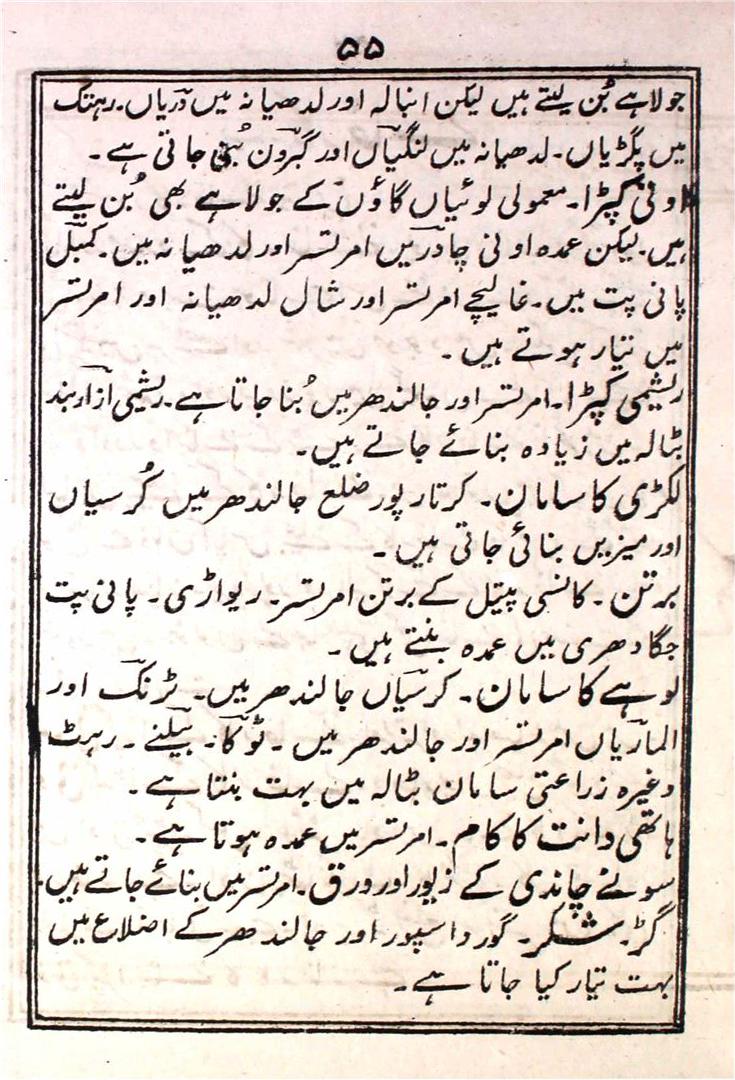 ۵۵
جولاہے بُن لیتے ہیں لیکن انبالہ اور لدھیانہ میں دریاں۔ رہتک
میں پگڑیاں۔ لدھیانہ میں لنگیاں اور گبرون بُنی جاتی ہے۔
اونی کپڑا۔ معمولی لوئیاں گاؤں کے جولاہے بھی بُن لیتے
ہیں۔ لیکن عمدہ اونی چادریں امرتسر اور لدھیانہ میں۔ کمبل
پانی پت میں۔ غالیچے امرتسر اور شال لدھیانہ اور امرتسر
میں تیار ہوتے ہیں۔
ریشمی کپڑا۔ امرتسر اور جالندھر میں بُنا جاتا ہے۔ ریشمی ازاربند
بٹالہ میں زیادہ بنائے جاتے ہیں۔
لکڑی کا سامان۔ کرتارپور ضلع جالندھر میں کُرسیاں
اور میزیں بنائی جاتی ہیں۔
برتن۔ کانسی پیتل کے برتن امرتسر۔ ریواڑی۔ پانی پت
جگادھری میں عمدہ بنتے ہیں۔
لوہے کا سامان۔ کرسیاں جالندھر میں۔ ٹرنک اور
الماریاں امرتسر اور جالندھر میں۔ ٹوکا۔ بیلنے۔ رہٹ
وغیرہ زراعتی سامان بٹالہ میں بہت بنتا ہے۔
ہاتھی دانت کا کام۔ امرتسر میں عمدہ ہوتا ہے۔
سونے چاندی کے زیور اور ورق۔ امرتسر میں بنائے جاتے ہیں۔
گڑ۔ شکر۔ گورداسپور اور جالندھر کے اضلاع میں
بہت تیار کیا جاتا ہے۔